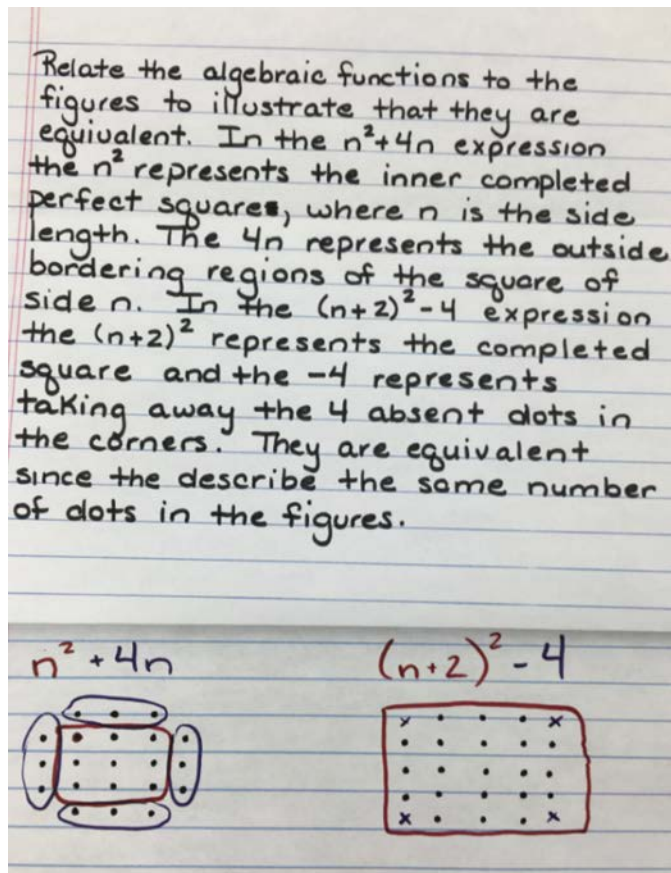 Relate the algebraic functions to the
figures to illustrate that they are
equivalent. In the n²+4n expression
the n² represents the inner completed
perfect square, where n is the side
length. The 4n represents the outside
bordering regions of the square of
side n. In the (n+2)²-4 expression
the (n+2)² represents the completed
square and the -4 represents
taking away the 4 absent dots in
the corners. They are equivalent
since the describe the same number
of dots in the figures.
n² + 4n
(n+2)² - 4